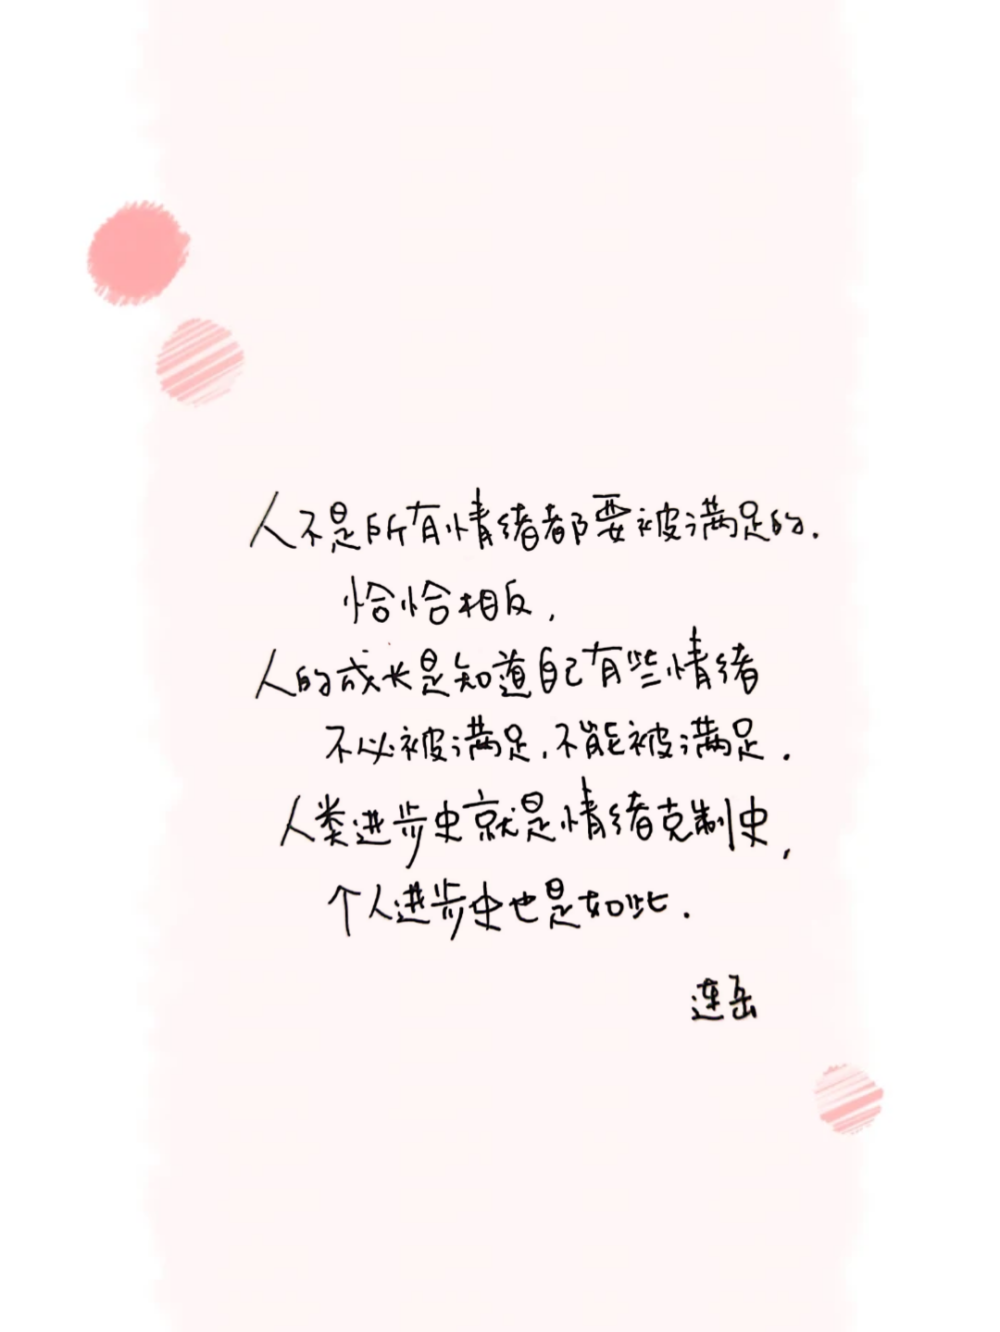 人不是所有情绪都要被满足的.
恰恰相反,
人的成长是知道自己有些情绪
不必被满足,不能被满足.
人类进步史就是情绪克制史,
个人进步史也是如此.
连岳